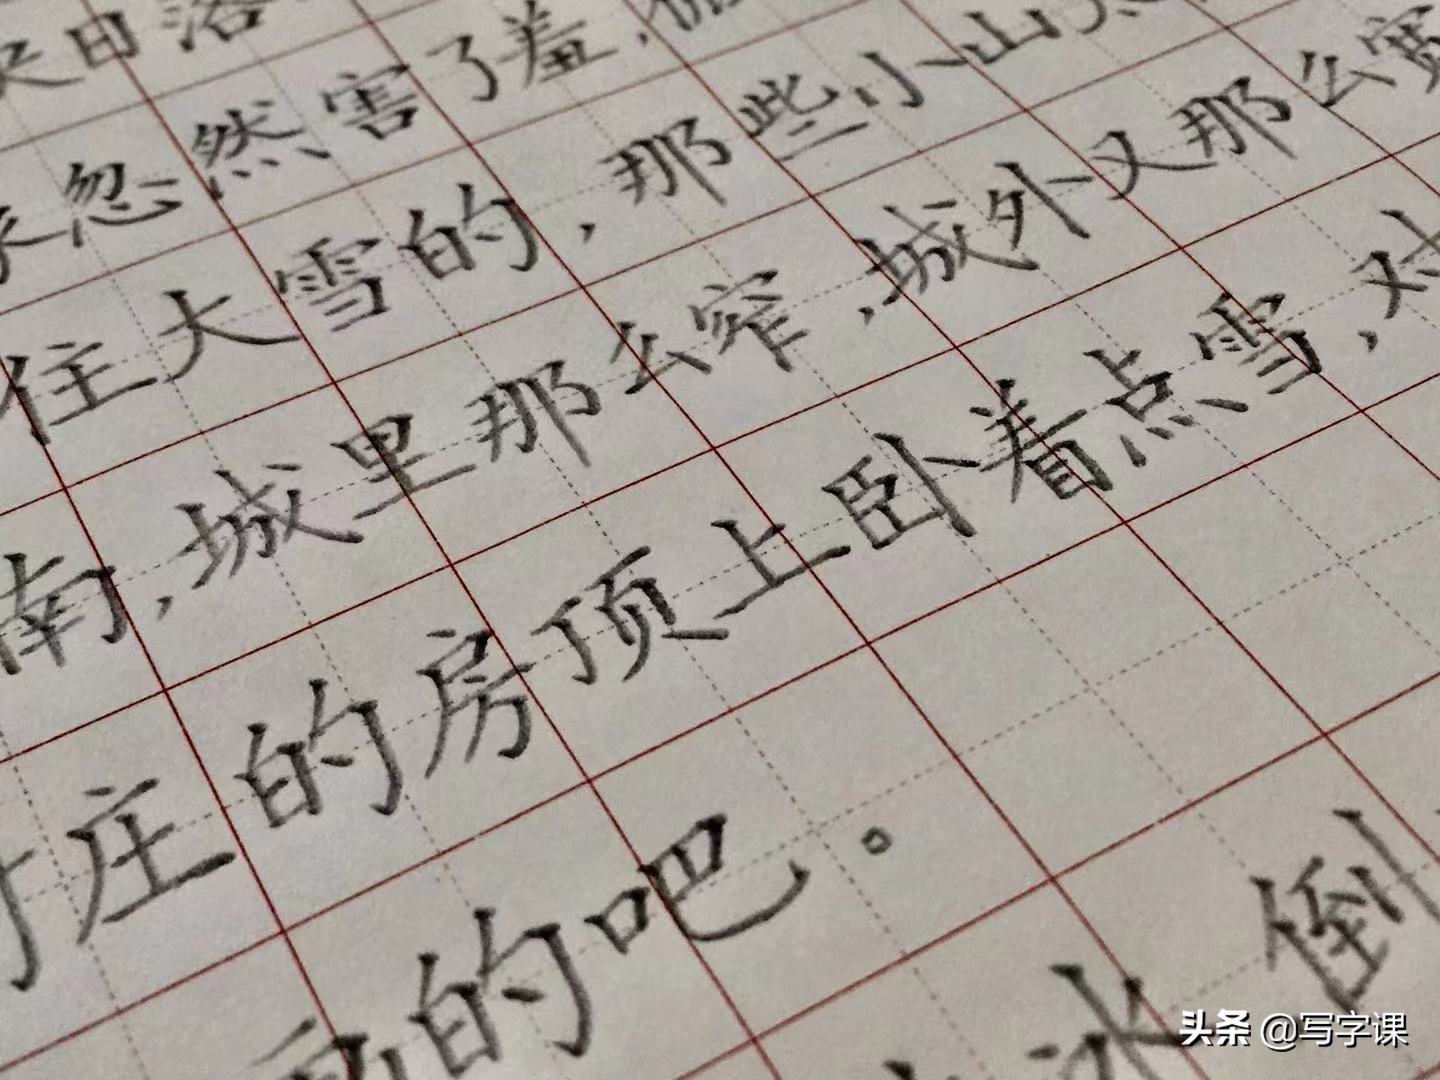 日落
忽然害了羞,
住大雪的,那些小山太
南,城里那么窄,城外又那么宽
庄的房顶上卧着点雪,对
的吧。
冰倒
头条 @写字课